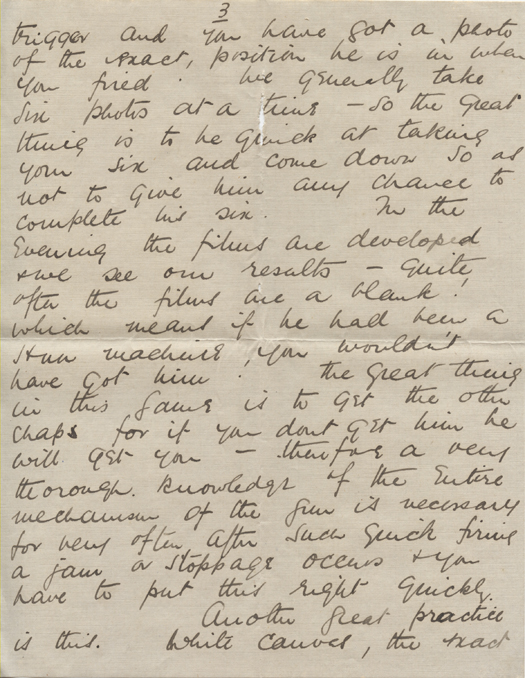 3
trigger and you have got a photo
of the exact, position he is in when
you fired. We generally take
six photos at a time – So the Great
thing is to be quick at taking
your six and come down so as
not to give him any chance to
complete his six. In the
Evening the films are developed
& we see our results – Quite
often the films are a blank!
which means if he had been a
Hun machine, you wouldn't
have got him the great thing
in this game is to get the other
chaps for if you dont get him he
will get you – therefore a very
thorough knowledge of the Entire
mechanism of the gun is necessary
for very often after such quick firing
a jam or stoppage occurs & you
have to put this right quickly.
Another great practice
is this. White canvas, the exact